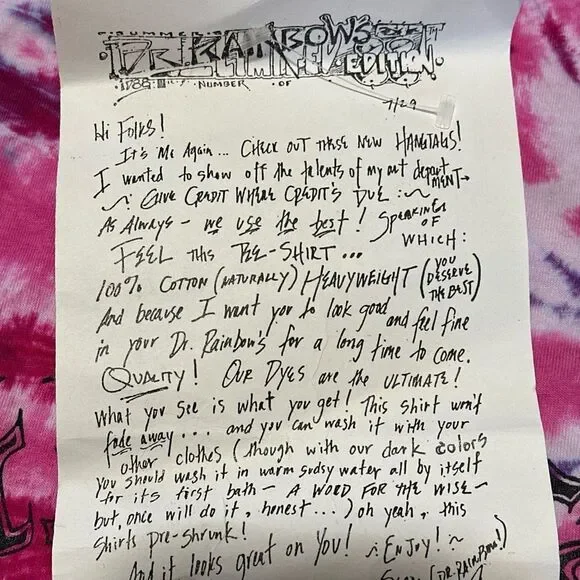 SUMMER
DR. RAINBOW'S
LIMITED EDITION
1988 NUMBER OF
7/29
Hi Folks!
It's Me Again... Check out these new HANGTAGS!
I wanted to show off the talents of my art department
~: Give Credit Where Credit's Due :~
As Always - we use the best! Speaking
of
which:
FEEL this TEE-SHIRT...
100% Cotton (naturally) HEAVYWEIGHT (you
deserve
the best)
And because I want you to look good and feel fine
in your Dr. Rainbow's for a long time to come.
QUALITY! Our Dyes are the ULTIMATE!
What you see is what you get! This shirt won't
fade away... and you can wash it with your
other clothes (though with our dark colors
you should wash it in warm sudsy water all by itself
for its first bath - A WORD FOR THE WISE -
but, once will do it, honest...) oh yeah, this
shirts pre-shrunk!
And it looks great on You! ~: Enjoy! ~
(DR. RAINBOW!)